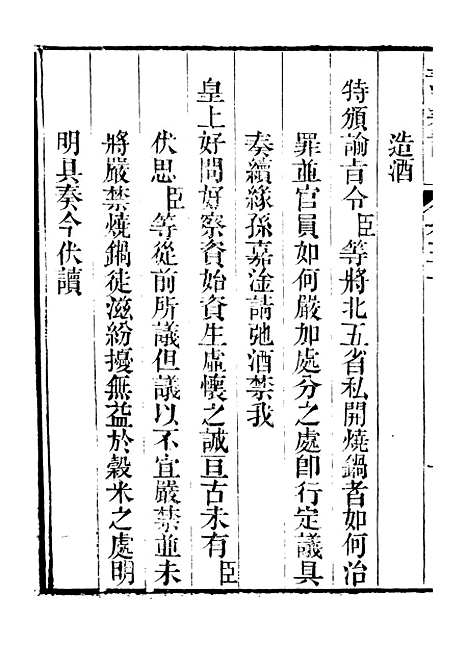 造酒
特頒諭旨令臣等將北五省私開燒鍋者如何治
罪並官員如何嚴加處分之處卽行定議具
奏續緣孫嘉淦請弛酒禁我
皇上好問好察資始資生虛懷之誠亘古未有臣
伏思臣等從前所議但議以不宜嚴禁並未
將嚴禁燒鍋徒滋紛擾無益於穀米之處明
明具奏今伏讀